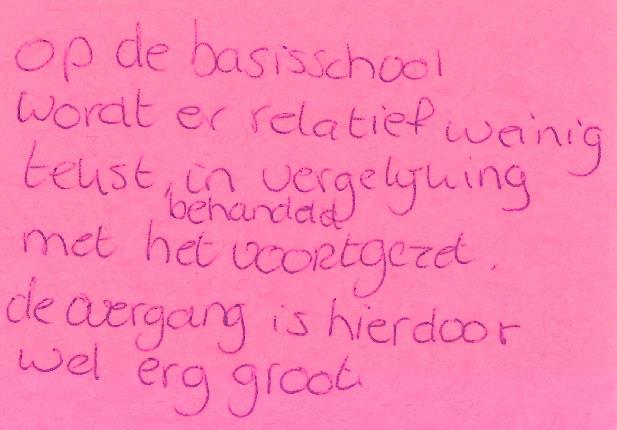 op de basisschool
wordt er relatief weinig
tekst, in vergelijking
behandeld
met het voortgezet.
de overgang is hierdoor
wel erg groot